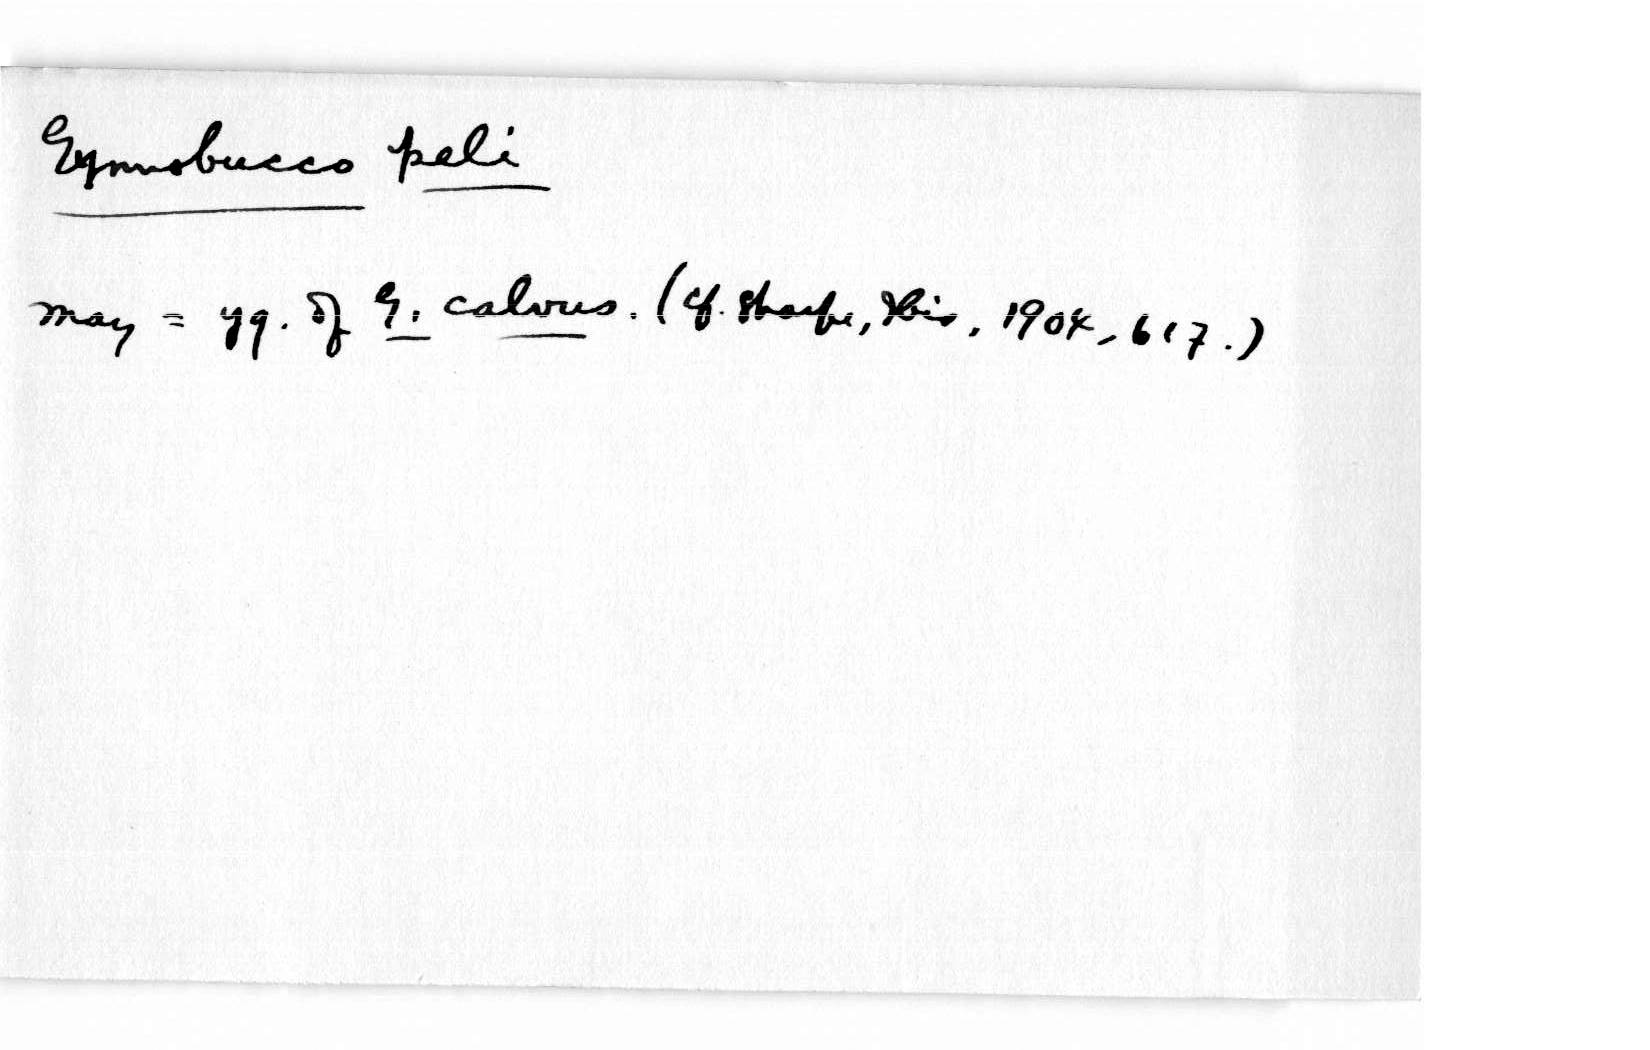 Gymnobucco peli
may = yg. of G. calvus. (Cf. Sharpe, Ibis, 1904, 617.)